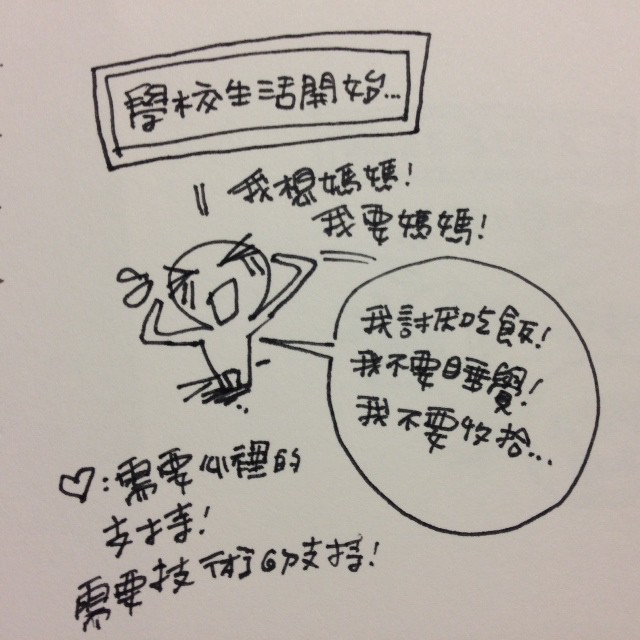 學校生活開始...
我想媽媽!
我要媽媽!
我討厭吃飯!
我不要睡覺!
我不要收拾...
♡:需要心裡的
支持!
需要技術的支持!